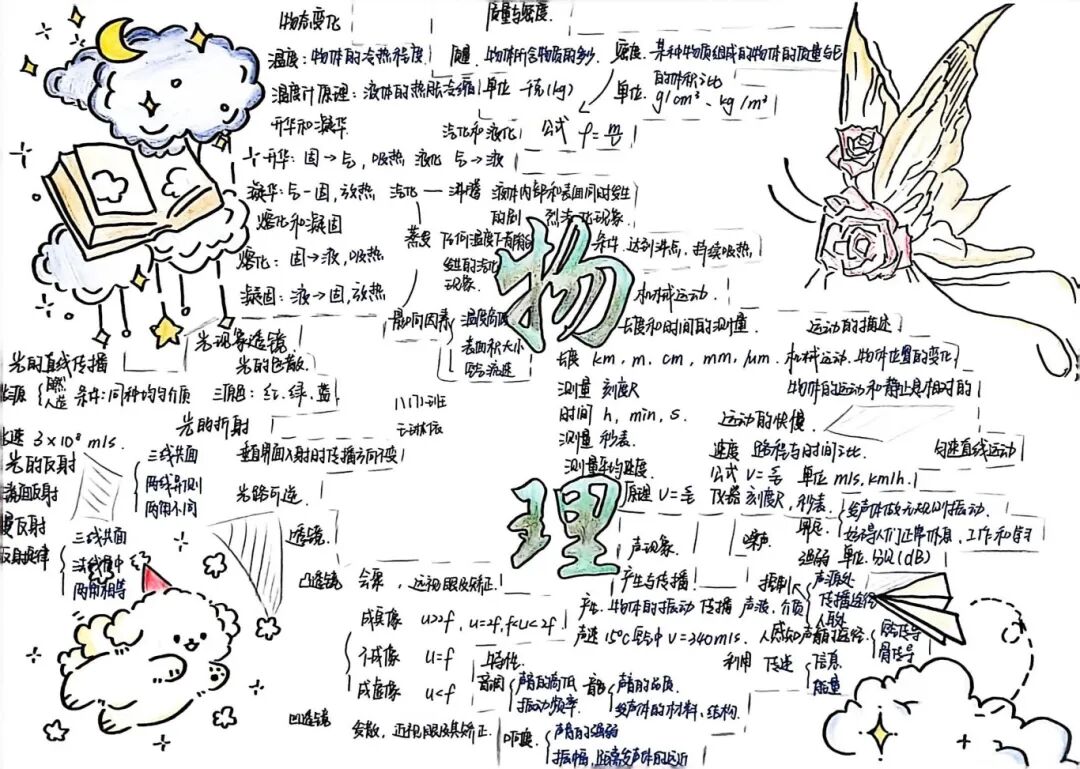 物态变化
质量与密度.
温度：物体的冷热程度
质量 物体所含物质的多少.
密度：某种物质组成的物体的质量与它
的体积之比
温度计原理：液体的热胀冷缩
单位 千克(kg)
单位. g/cm³、kg/m³
升华和凝华
汽化和液化
公式
升华：固→气，吸热
液化 气→液
凝华：气→固，放热
汽化 — 沸腾
液体内部和表面同时发生
的剧烈汽化现象.
熔化和凝固
蒸发
条件. 达到沸点，持续吸热.
熔化：固→液，吸热
发生的汽化
现象.
凝固：液→固，放热
影响因素
温度高低
表面积大小
物理
机械运动.
长度和时间的测量.
运动的描述
长度 km, m, cm, mm, μm.
机械运动. 物体位置的变化
测量 刻度尺
物体的运动和静止是相对的
时间 h, min, s.
运动的快慢
测量 秒表.
速度 路程与时间之比
匀速直线运动
测量平均速度
单位 m/s, km/h.
仪器 刻度尺，秒表
光现象透镜
光的直线传播
光的色散.
人造
条件：同种均匀介质
三原色：红、绿、蓝
八(7)班
光的折射
3×10⁸ m/s.
光的反射
三线共面
两线异侧
两角不同
垂直界面入射时传播方向不变
镜面反射
光路可逆
漫反射
反射规律
三线共面
法线居中
两角相等
透镜.
凸透镜
会聚，远视眼及矫正.
成实像 u>2f, u=2f, f<u<2f.
不成像 u=f
成虚像 u<f
凹透镜
发散，近视眼及其矫正.
声现象.
噪声
发声体做无规则振动.
妨碍人们正常休息，工作和学习
强弱 单位. 分贝(dB)
产生与传播
控制
声源处
传播途径
人耳处
产生. 物体的振动
传播 声源、介质
声速 15℃空气中 v=340m/s.
骨传导
利用 传递
信息
能量
特性.
音调
声音的高低
振动频率.
音色
声音的品质.
发声体的材料、结构.
响度.
声音的强弱
振幅，距离发声体的远近